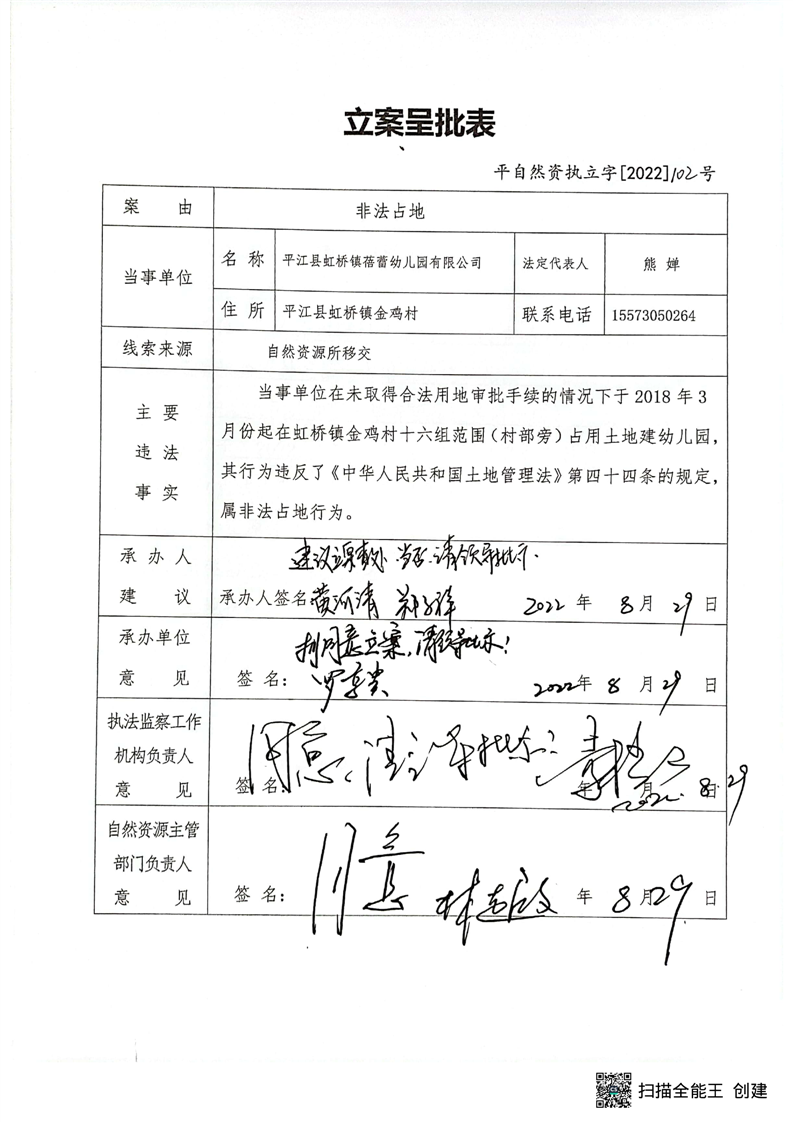 立案呈批表
平自然资执立字[2022]102号
案 由 非法占地
当事单位 名 称 平江县虹桥镇蓓蕾幼儿园有限公司 法定代表人 熊 婵
住 所 平江县虹桥镇金鸡村 联系电话 15573050264
线索来源 自然资源所移交
主 要 违 法 事 实
当事单位在未取得合法用地审批手续的情况下于 2018 年 3
月份起在虹桥镇金鸡村十六组范围（村部旁）占用土地建幼儿园，
其行为违反了《中华人民共和国土地管理法》第四十四条的规定，
属非法占地行为。
承 办 人 建 议
建议立案查处 当否 请领导批示.
承办人签名 黄河清 2022 年 8 月 29 日
承办单位 意 见
同意立案，请领导批示!
签 名： 2022 年 8 月 29 日
执法监察工作 机构负责人 意 见
同意、请 批示
签 名： 年 月 日 2022. 8. 29
自然资源主管 部门负责人 意 见
同意
签 名： 年 8 月 29 日
扫描全能王 创建